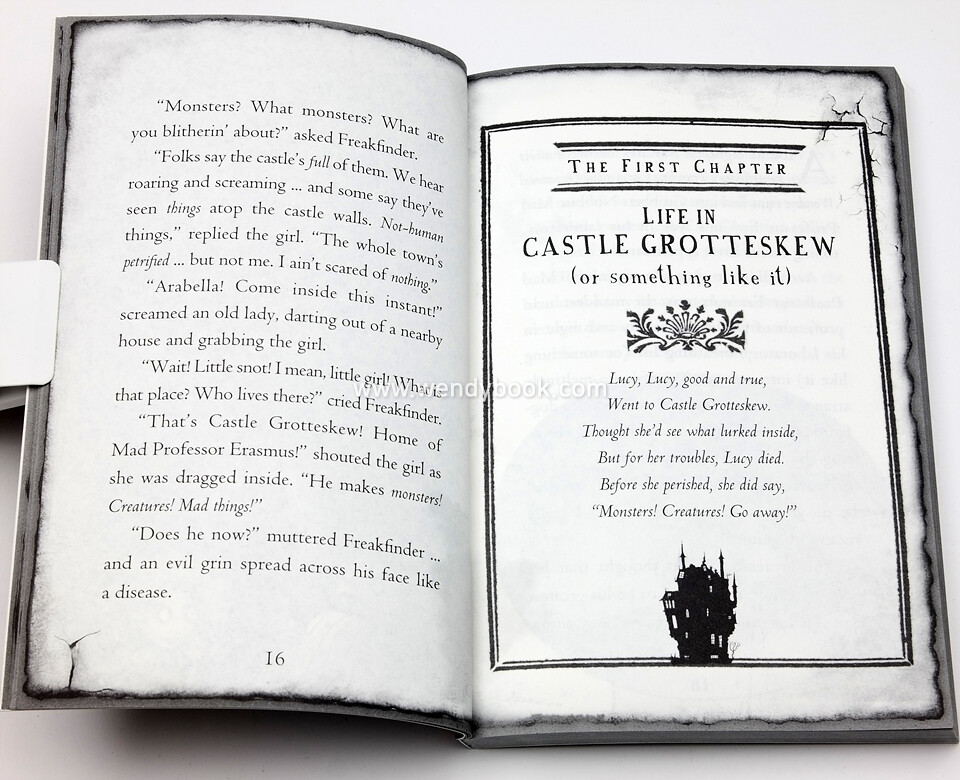 “Monsters? What monsters? What are
you blitherin’ about?” asked Freakfinder.
“Folks say the castle’s full of them. We hear
roaring and screaming ... and some say they’ve
seen things atop the castle walls. Not-human
things,” replied the girl. “The whole town’s
petrified ... but not me. I ain’t scared of nothing.”
“Arabella! Come inside this instant!”
screamed an old lady, darting out of a nearby
house and grabbing the girl.
“Wait! Little snot! I mean, little girl! What is
that place? Who lives there?” cried Freakfinder.
“That’s Castle Grotteskew! Home of
Mad Professor Erasmus!” shouted the girl as
she was dragged inside. “He makes monsters!
Creatures! Mad things!”
“Does he now?” muttered Freakfinder ...
and an evil grin spread across his face like
a disease.
16
THE FIRST CHAPTER
LIFE IN
CASTLE GROTTESKEW
(or something like it)
www.wendybook.com
Lucy, Lucy, good and true,
Went to Castle Grotteskew.
Thought she’d see what lurked inside,
But for her troubles, Lucy died.
Before she perished, she did say,
“Monsters! Creatures! Go away!”